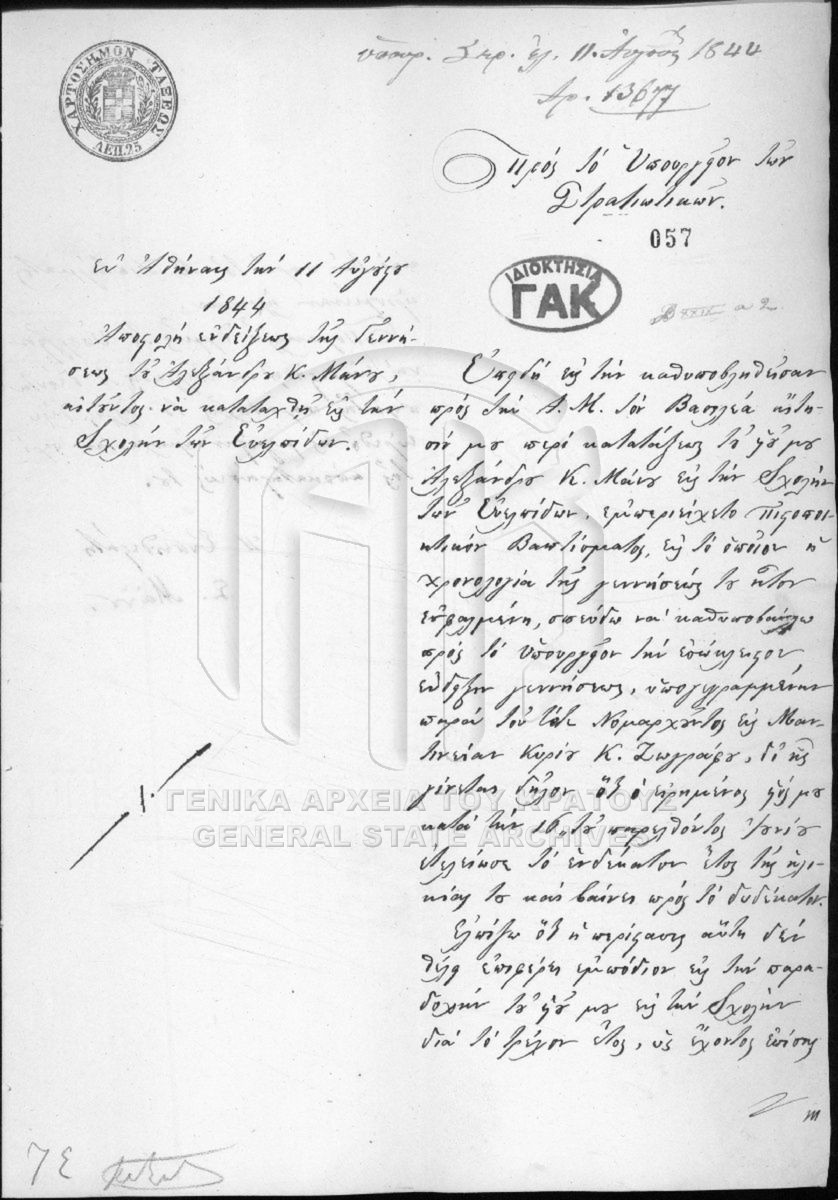 ΧΑΡΤΟΣΗΜΟΝ ΤΑΞΕΩΣ
ΛΕΠ. 25
11 Αὐγούστ 1844
Ἀρ. 13677
Πρός τὸ Ὑπουργεῖον τῶν
Στρατιωτικῶν.
057
ΙΔΙΟΚΤΗΣΙΑ
ΓΑΚ
Ἐν Ἀθήναις τὴν 11 Αὐγούστου
1844
Ἀποστολή ἐνδείξεως τῆς γεννή-
σεως τοῦ Ἀλεξάνδρου Κ. Μάνου,
αἰτοῦντος νὰ καταταχθῇ εἰς τὴν
Σχολὴν τῶν Εὐελπίδων.
Ἐπειδή εἰς τὴν καθυποβληθεῖσαν
πρός τὴν Α. Μ. τὸν Βασιλέα αἴτη-
σίν μου περί κατατάξεως τοῦ υἱοῦ μου
Ἀλεξάνδρου Κ. Μάνου εἰς τὴν Σχολὴν
τῶν Εὐελπίδων, ἐμπεριείχετο Πιστοποι-
ητικόν Βαπτίσματος, εἰς τὸ ὁποῖον ἡ
χρονολογία τῆς γεννήσεώς του ἦτον
ἐσφαλμένη, σπεύδω νὰ καθυποβάλω
πρός τὸ Ὑπουργεῖον τὴν ἐσώκλειστον
ἔνδειξιν γεννήσεως, ὑπογεγραμμένην
παρά τοῦ τότε Νομαρχοῦντος εἰς Μαν-
τινείαν Κυρίου Κ. Ζωγράφου, δι' ἧς
γίνεται δῆλον ὅτι ὁ εἰρημένος υἱός μου
κατά τὴν 16 τοῦ παρελθόντος Ἰουνίου
ἐτελείωσε τὸ ἑνδέκατον ἔτος τῆς ἡλι-
κίας του καί βαίνει πρός τὸ δωδέκατον.
Ἐλπίζω ὅτι ἡ περίστασις αὕτη δέν
θέλει ἐπιφέρει ἐμπόδιον εἰς τὴν παρα-
δοχήν τοῦ υἱοῦ μου εἰς τὴν Σχολὴν
διά τὸ τρέχον ἔτος, ὡς ἔχοντος ἐπίσης
ΓΕΝΙΚΑ ΑΡΧΕΙΑ ΤΟΥ ΚΡΑΤΟΥΣ
GENERAL STATE ARCHIVES